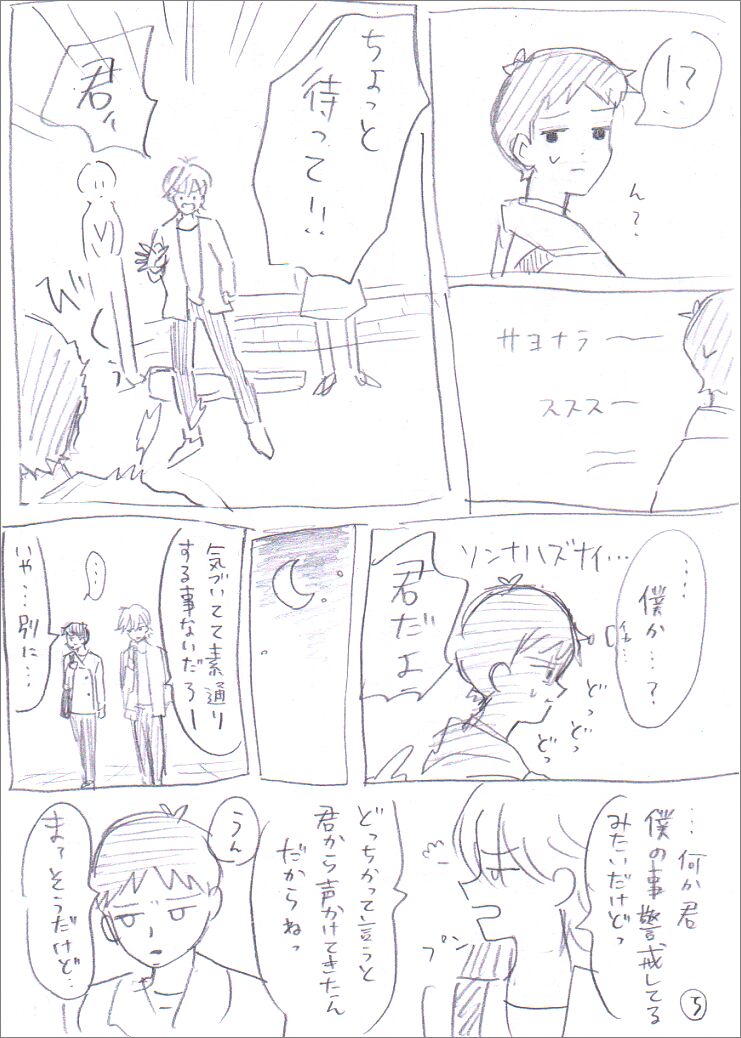 !?
ん?
サヨナラ〜
ススス〜
ちょっと
待って!!
君!
びくぅ
…
僕か…?
イヤ…
ソンナハズナイ…
どっどっ
どっ
君だよ
気づいてて素通り
する事ないだろー
…
いや…別に…
…何か君
僕の事警戒してる
みたいだけどっ
プン
どっちかって言うと
君から声かけてきたん
だからねっ
うん
まぁそうだけど…
5